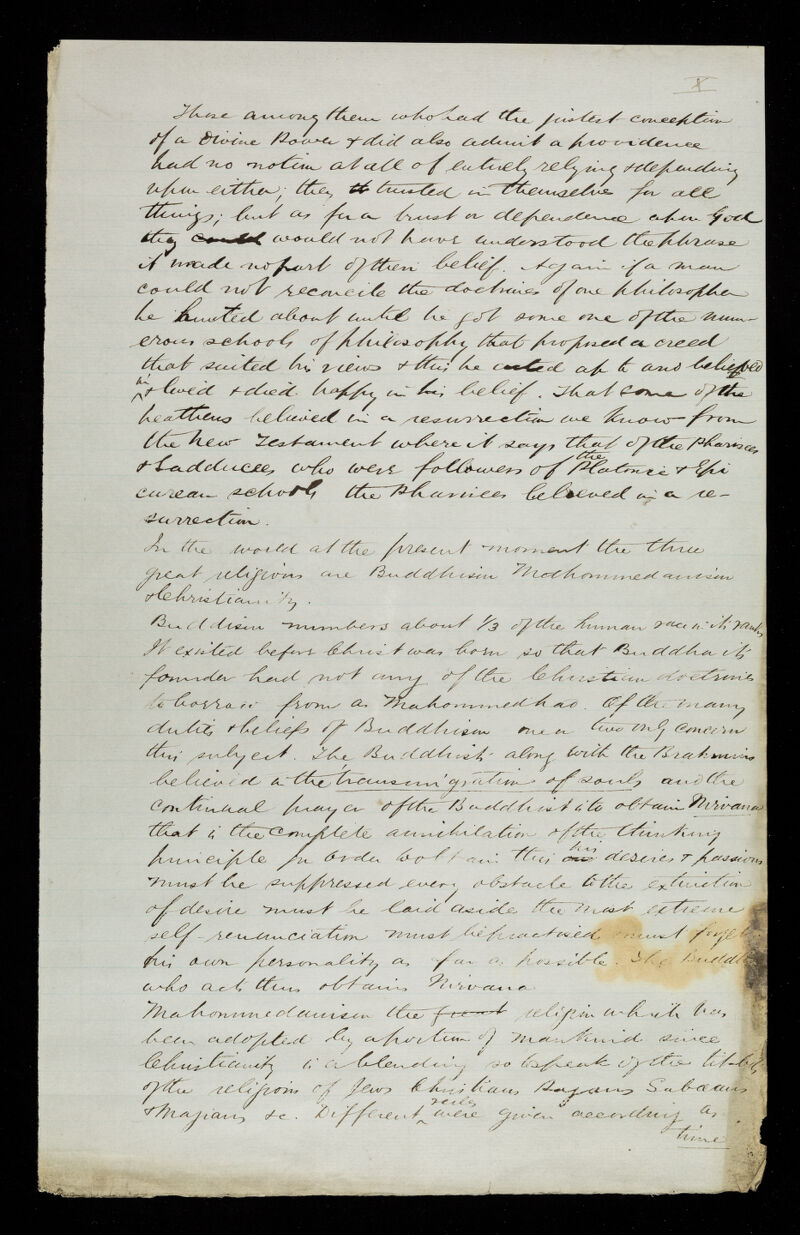 X
Those among them who had the justest conception
of a Divine Power & did also admit a providence
had no notion at all of entirely relying & depending
upon either; they to trusted in themselves for all
things; but as for a trust or dependence upon God
they could would not have understood the phrase
it made no part of their belief. Again if a man
could not reconcile the doctrines of one philosopher
he hunted about until he got some one of the num-
erous schools of philosophy that proposed a creed
that suited his views & this he acted up to and believed
in & lived & died happy in his belief. That some of the
heathens believed in a resurrection we know from
the New Testament where it says that of the Pharisees
& Sadducees who were followers of the Platonic & Epi
curean schools the Pharisees believed in a re-
surrection.
In the world at the present moment the three
great religions are Buddhism Mothommedanism
& Christianity.
Buddism numbers about 1/3 of the human race in its ranks
It existed before Christ was born so that Buddha its
founder had not any of the Christian doctrines
to borrow from as Mahommed had. Of the many
duties & beliefs of Buddhism one or two only concern
this subject. The Buddhists along with the Brahmins
believed in the transmigration of souls and the
continual prayer of the Buddhist is to obtain Nirvana
that is the complete annihilation of the thinking
principle In order to obtain this one his desires & passions
must be suppressed every obstacle to the extinction
of desire must be laid aside the most extreme
self-renunciation must be practised must forget
his own personality as far as possible. The Buddh
who acts thus obtains Nirvana
Mahommedanism the religion which has
been adopted by a portion of mankind since
Christianity is a blending so to speak of the tit-bits
of the religions of Jews Christians Pagans Sabaeans
& Magians &c. Different were given according as
time